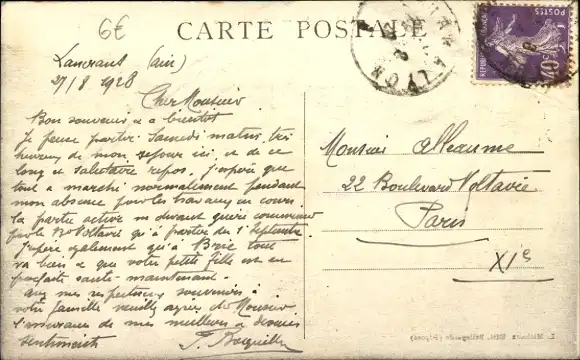 6€
CARTE POSTALE
Lancrans (ain)
27/8 1928
Cher Monsieur
Bon souvenir et a bientôt
Je pense partir Samedi matin très
heureux de mon sejour ici et de ce
long et salutaire repos. J'espère que
tout a marché normalement pendant
mon absence pour les travaux en cours
la partie active ne devant guère commencer
pour le Bd Voltaire qu'à partir du 1er Septembre.
J'espère également qu'à Brie tout
va bien et que votre petite fille est en
parfaite santé maintenant.
avec mes respectueux souvenirs à
votre famille veuillez agréer cher Monsieur
l'assurance de mes meilleurs et dévoués
sentiments
Monsieur Alleaume
22 Boulevard Voltaire
Paris
XIe
POSTES
40c
A LYON